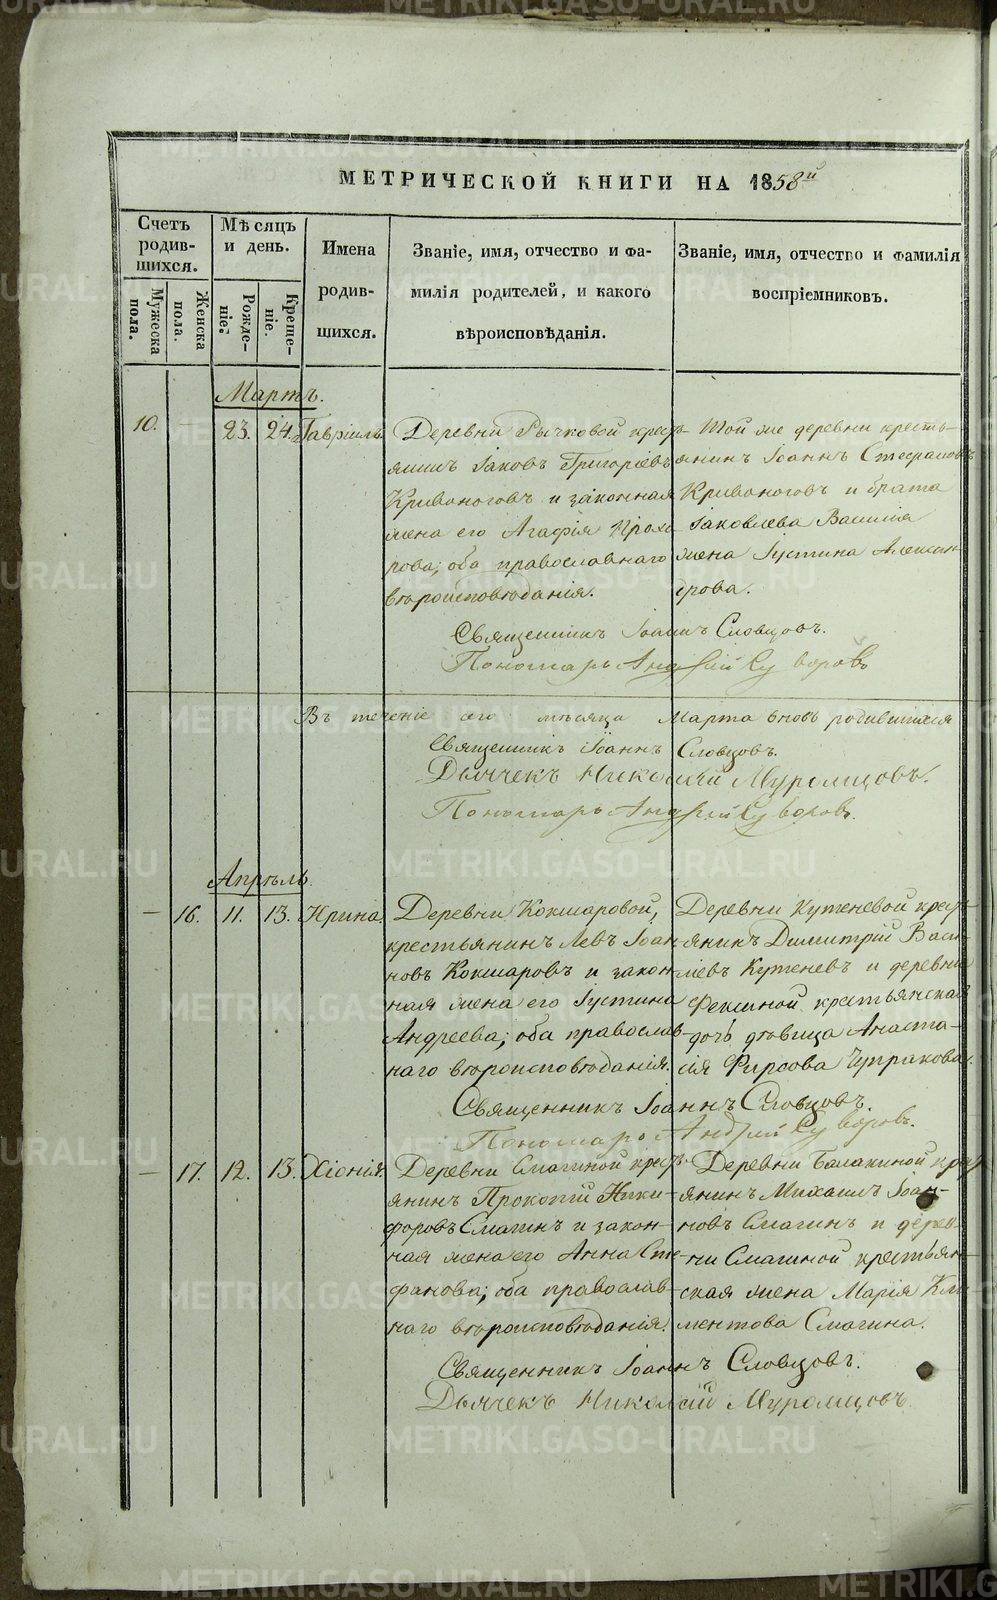 МЕТРИЧЕСКОЙ КНИГИ НА 1858й
Счетъ родив-шихся.
Мужеска пола.
Женска пола.
Мѣсяцъ и день.
Рожде-ніе.
Креще-ніе.
Имена родив-шихся.
Званіе, имя, отчество и фа-
милія родителей, и какого
вѣроисповѣданія.
Званіе, имя, отчество и фамилія
воспріемниковъ.
Мартъ.
10. — 23. 24. Гавріилъ.
Деревни Рычковой кресть-
янинъ Іаковъ Григоріевъ
Кривоноговъ и законная
жена его Агафія Прохо
рова; оба православнаго
вѣроисповѣданія.
Той же деревни кресть-
янинъ Іоаннъ Стефановъ
Кривоноговъ и брата
Іаковлева Василія
жена Іустина Алексан-
дрова.
Священникъ Іоаннъ Словцовъ.
Пономарь Андрей Суворовъ
Въ теченіе сего мѣсяца Марта вновь родившихся
Священникъ Іоаннъ Словцовъ.
Дьячекъ Николай Муромцовъ.
Пономарь Андрей Суворовъ.
Апрѣль.
— 16. 11. 13. Ирина.
Деревни Кокшаровой,
крестьянинъ Левъ Іоан
новъ Кокшаровъ и закон-
ная жена его Іустина
Андреева; оба православ-
наго вѣроисповѣданія.
Деревни Кутеневой кресть-
янинъ Димитрій Васи-
ліевъ Кутеневъ и деревни
Фекиной крестьянская
дочь дѣвица Анаста-
сія Фирсова Чупракова.
Священникъ Іоаннъ Словцовъ.
Пономарь Андрей Суворовъ.
— 17. 12. 13. Хіонія.
Деревни Смагиной кресть-
янинъ Прокопій Ники-
форовъ Смагинъ и закон-
ная жена его Анна Сте-
фанова; оба православ-
наго вѣроисповѣданія.
Деревни Балакиной крест
янинъ Михаилъ Іоан-
новъ Смагинъ и дерев-
ни Смагиной крестьян-
ская жена Марія Кли
ментова Смагина.
Священникъ Іоаннъ Словцовъ.
Дьячекъ Николай Муромцовъ.
METRIKI.GASO-URAL.RU